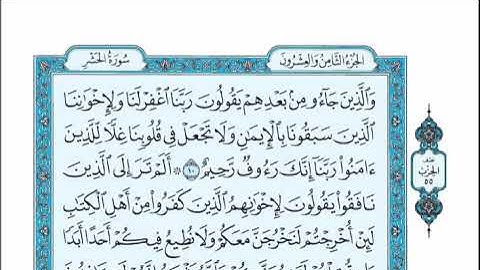 الجزء الثامن والعشرون
سورة الحشر
وَٱلَّذِينَ جَآءُو مِنۢ بَعۡدِهِمۡ يَقُولُونَ رَبَّنَا ٱغۡفِرۡ لَنَا وَلِإِخۡوَٰنِنَا
ٱلَّذِينَ سَبَقُونَا بِٱلۡإِيمَٰنِ وَلَا تَجۡعَلۡ فِي قُلُوبِنَا غِلّٗا لِّلَّذِينَ
ءَامَنُواْ رَبَّنَآ إِنَّكَ رَءُوفٞ رَّحِيمٌ ١٠ ۞ أَلَمۡ تَرَ إِلَى ٱلَّذِينَ
نَافَقُواْ يَقُولُونَ لِإِخۡوَٰنِهِمُ ٱلَّذِينَ كَفَرُواْ مِنۡ أَهۡلِ ٱلۡكِتَٰبِ
لَئِنۡ أُخۡرِجۡتُمۡ لَنَخۡرُجَنَّ مَعَكُمۡ وَلَا نُطِيعُ فِيكُمۡ أَحَدًا أَبَدٗا
الحزب
٥٥